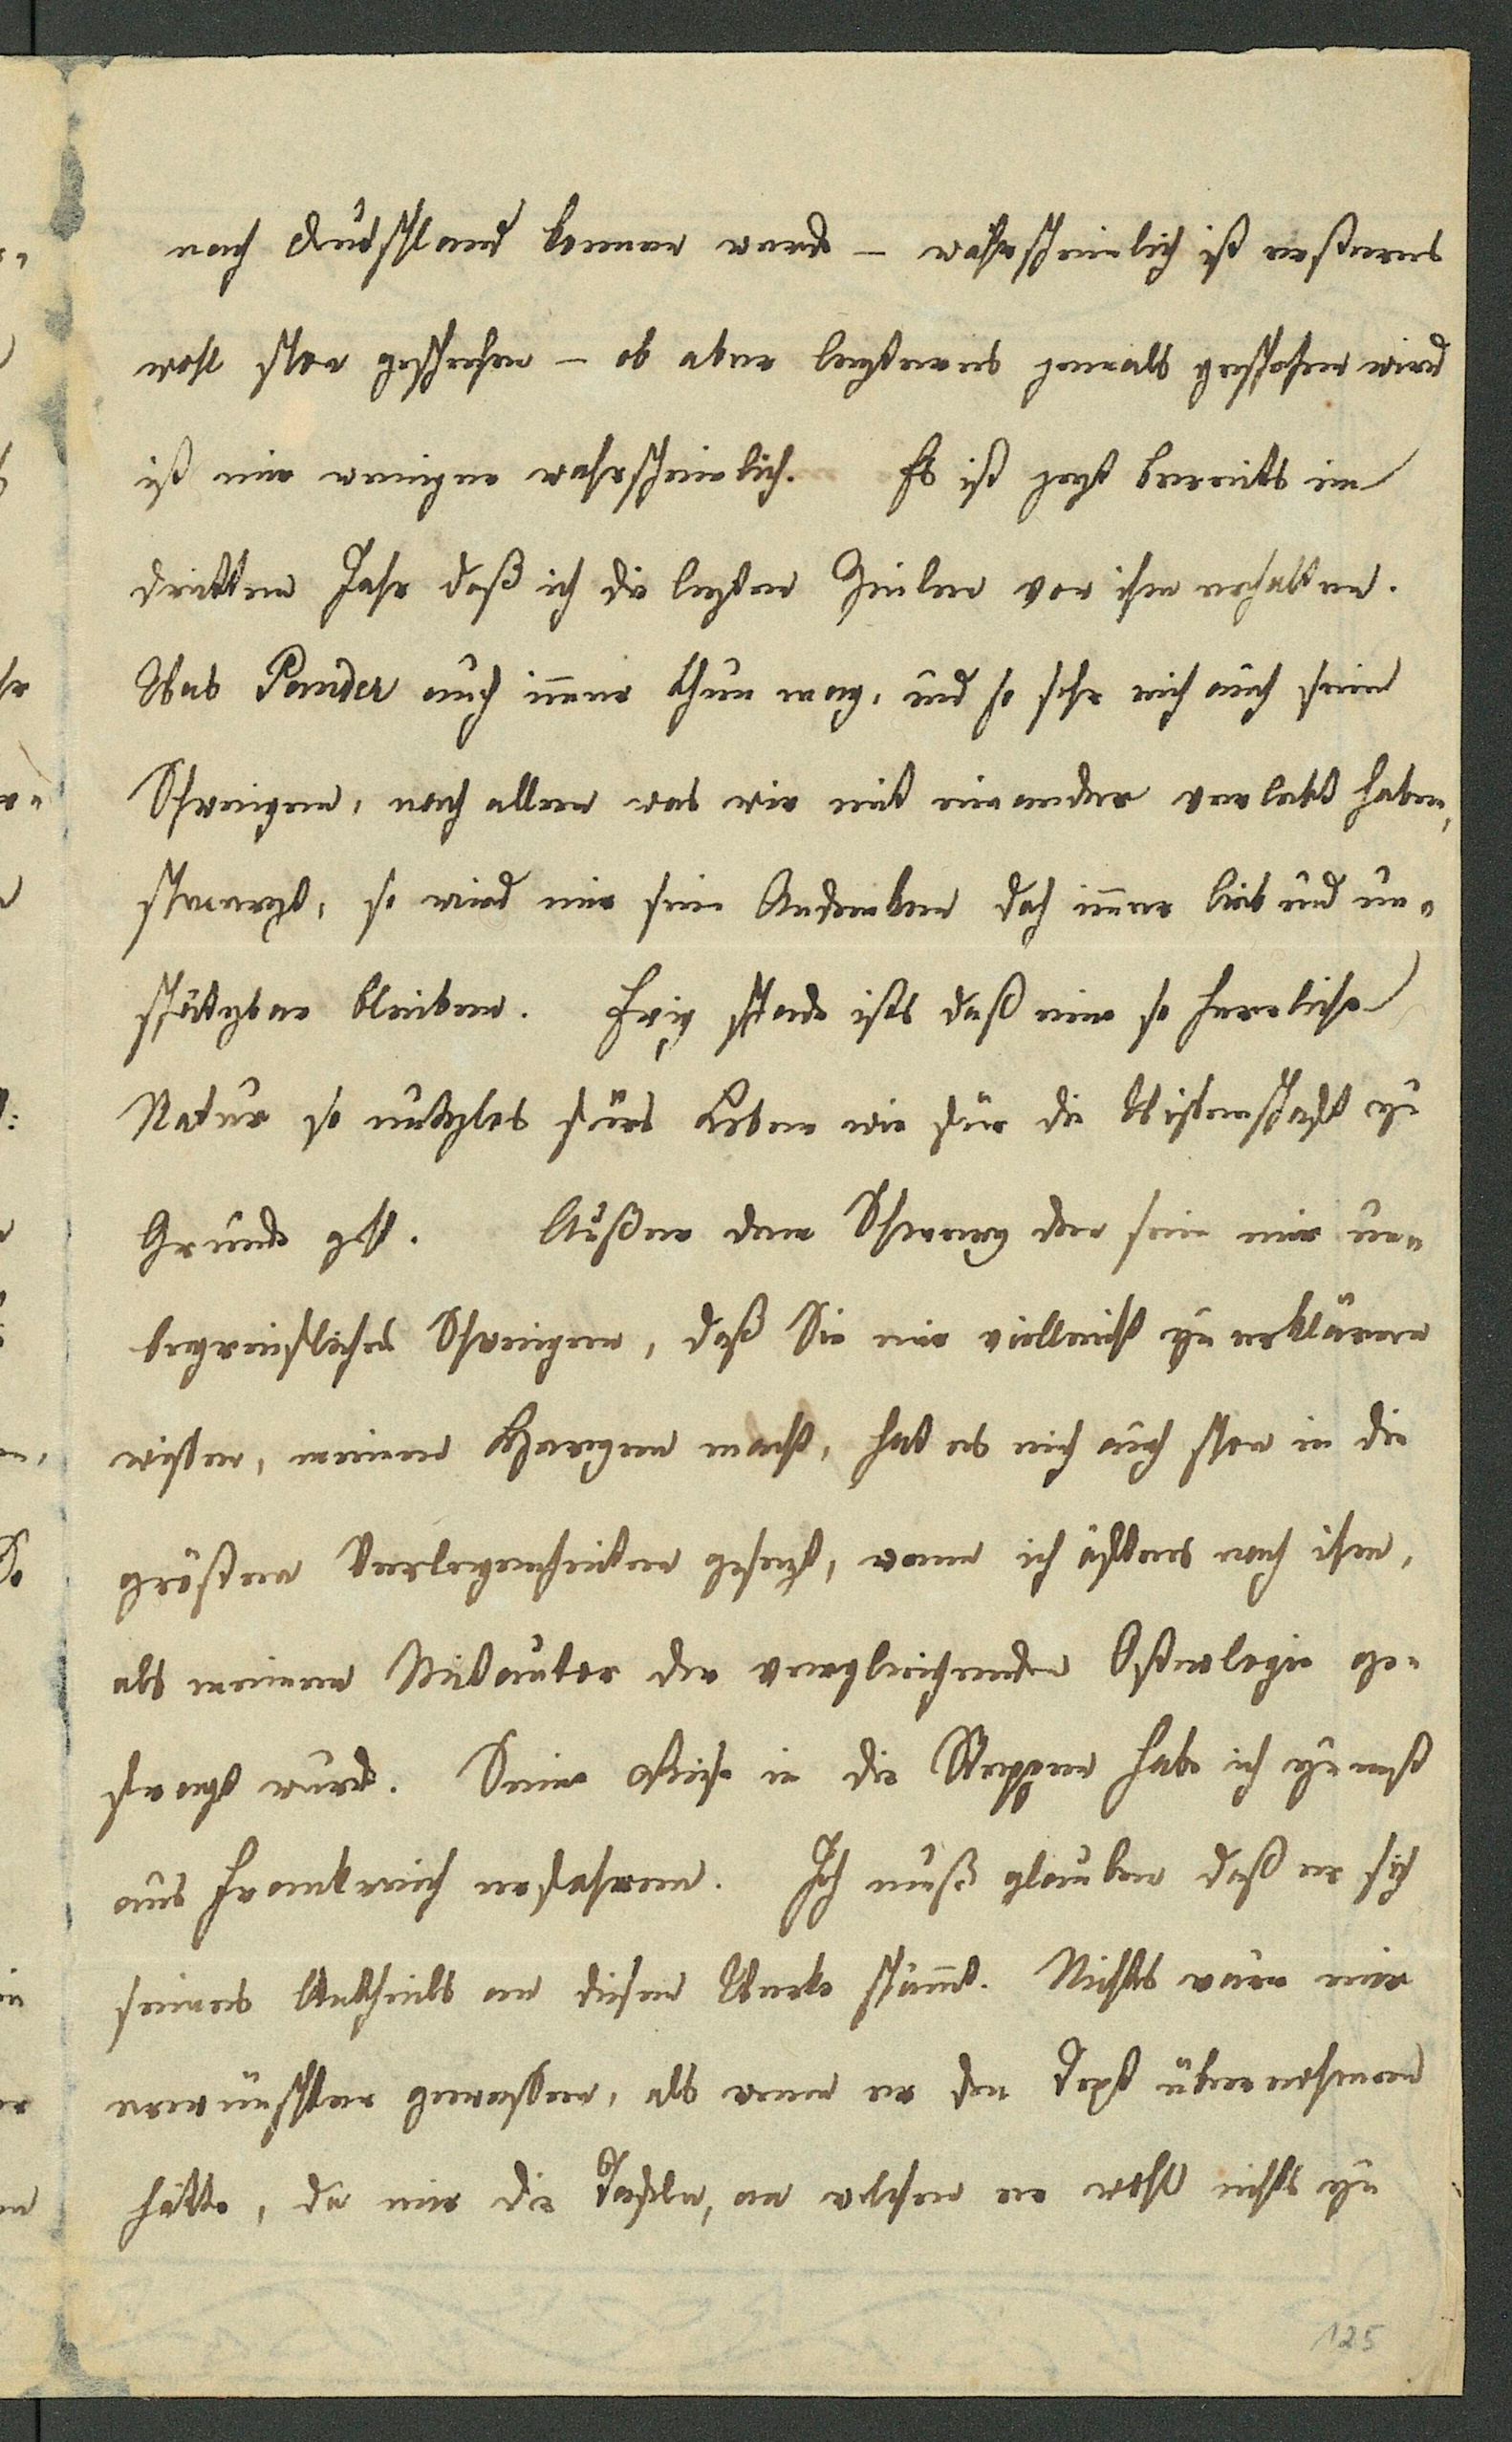 nach Rußland komen werde – wahrscheinlich ist ersteres
wohl schon geschehen – ob aber lezteres jemals geschehen wird
ist mir weniger wahrscheinlich. Es ist jezt bereits im
dritten Jahr daß ich die lezten Zeilen von ihm erhalten.
Was Pander auch imer thun mag, und so sehr mich auch sein
Schweigen, nach allem was wir mit einander verlebt haben,
schmerzt, so wird mir sein Andenken doch imer lieb und un-
schätzbar bleiben. Ewig schade ists daß eine so herrliche
Natur so nutzlos fürs Leben wie für die Wissenschaft zu
Grunde geht. Außer dem Schmerz den sein mir un-
begreifliches Schweigen, daß Sie mir vielleicht zu erklären
wissen, meinem Herzen macht, hat es mich auch schon in die
größten Verlegenheiten gesezt, wenn ich öfters nach ihm,
als meinem Mitautor der vergleichenden Osteologie ge-
fragt wurde. Seine Reise in die Steppen habe ich zuerst
aus Frankreich erfahren. Ich muß glauben daß er sich
seines Antheils an diesem Werke schämt. Nichts wäre mir
erwünschter gewessen, als wenn er den Text übernehmen
hätte, da mir die Tafeln, an welchen er wohl nichts zu
125